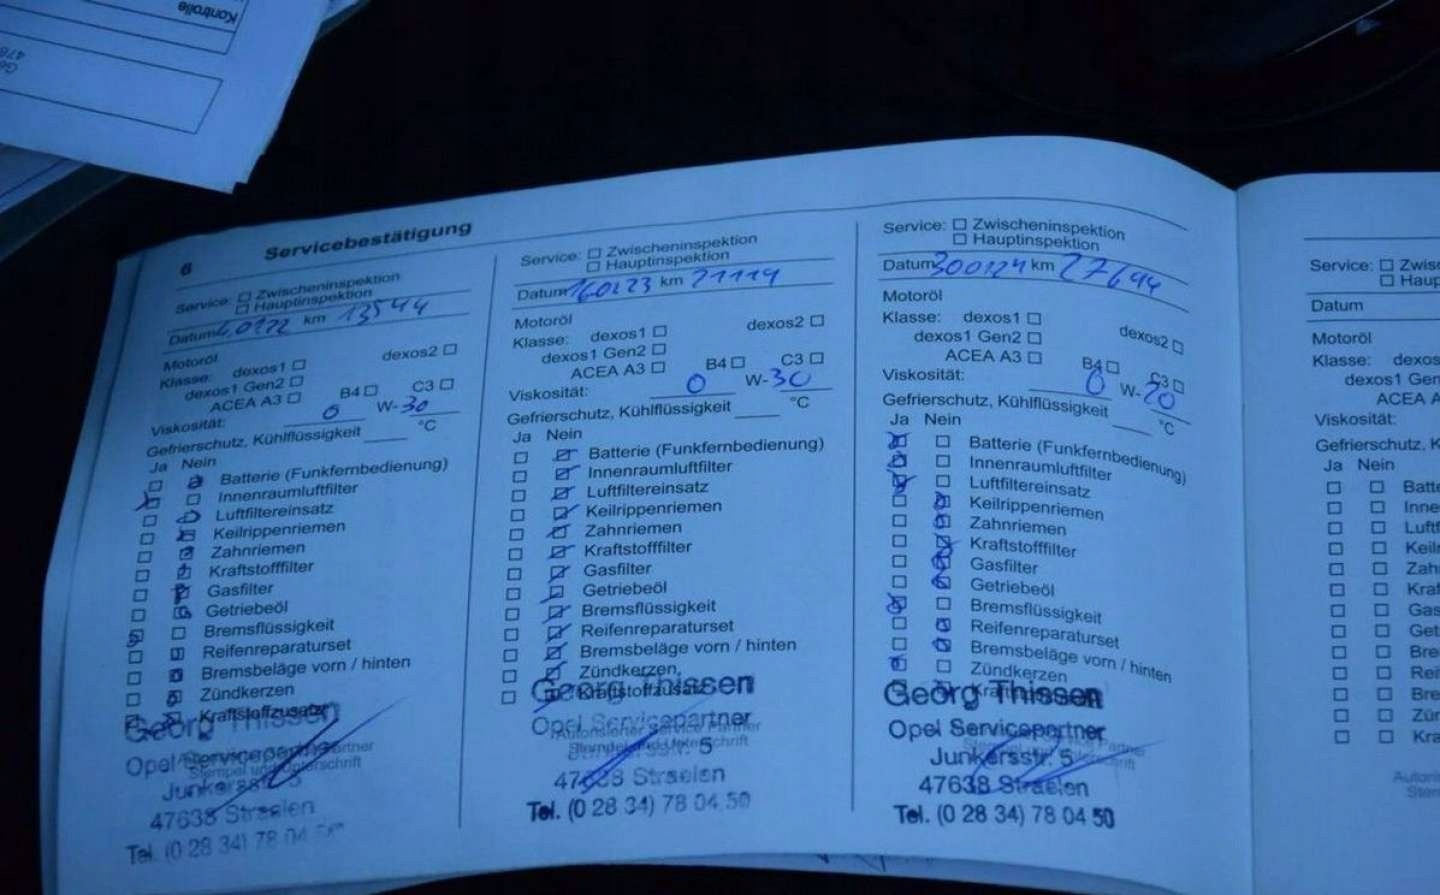 Kontrolle
478
6
Servicebestätigung
Service: Zwischeninspektion
Hauptinspektion
Datum km 13544
Motoröl
Klasse: dexos1 dexos2
dexos1 Gen2
ACEA A3 B4 C3
Viskosität: 0 W-30
Gefrierschutz, Kühlflüssigkeit °C
Ja Nein
Batterie (Funkfernbedienung)
Innenraumluftfilter
Luftfiltereinsatz
Keilrippenriemen
Zahnriemen
Kraftstofffilter
Gasfilter
Getriebeöl
Bremsflüssigkeit
Reifenreparaturset
Bremsbeläge vorn / hinten
Zündkerzen
Kraftstoffzusatz
Georg Thissen
Opel Servicepartner
Stempel und Unterschrift
Junkersstr. 5
47638 Straelen
Tel. (0 28 34) 78 04 50
Service: Zwischeninspektion
Hauptinspektion
Datum 160223 km 21119
Motoröl
Klasse: dexos1 dexos2
dexos1 Gen2
ACEA A3 B4 C3
Viskosität: 0 W-30
Gefrierschutz, Kühlflüssigkeit °C
Ja Nein
Batterie (Funkfernbedienung)
Innenraumluftfilter
Luftfiltereinsatz
Keilrippenriemen
Zahnriemen
Kraftstofffilter
Gasfilter
Getriebeöl
Bremsflüssigkeit
Reifenreparaturset
Bremsbeläge vorn / hinten
Zündkerzen
Kraftstoffzusatz
Georg Thissen
Opel Servicepartner
Autorisierter Service Partner
Stempel und Unterschrift
Junkersstr. 5
47638 Straelen
Tel. (0 28 34) 78 04 50
Service: Zwischeninspektion
Hauptinspektion
Datum 300124 km 27644
Motoröl
Klasse: dexos1 dexos2
dexos1 Gen2
ACEA A3 B4 C3
Viskosität: 0 W-20
Gefrierschutz, Kühlflüssigkeit °C
Ja Nein
Batterie (Funkfernbedienung)
Innenraumluftfilter
Luftfiltereinsatz
Keilrippenriemen
Zahnriemen
Kraftstofffilter
Gasfilter
Getriebeöl
Bremsflüssigkeit
Reifenreparaturset
Bremsbeläge vorn / hinten
Zündkerzen
Georg Thissen
Opel Servicepartner
Junkersstr. 5
47638 Straelen
Tel. (0 28 34) 78 04 50
Service: Zwis
Haup
Datum
Motoröl
Klasse: dexos
dexos1 Gen
ACEA A
Viskosität:
Gefrierschutz, K
Ja Nein
Batte
Inne
Luft
Keil
Zah
Kraf
Gas
Get
Bre
Rei
Bre
Zün
Kra
Autoris
Stem